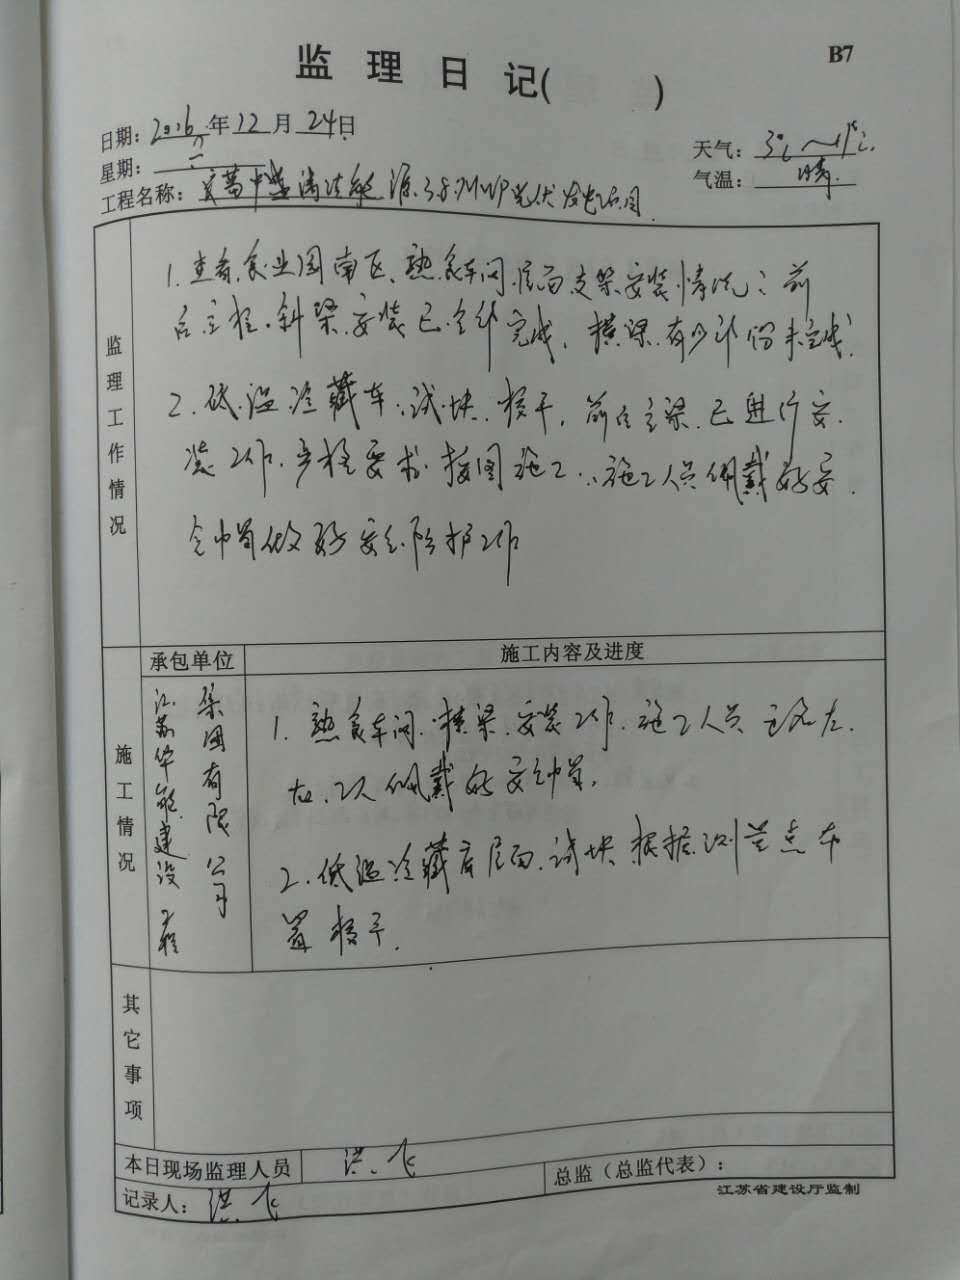 监理日记(　　)
B7
日期：2016年12月24日
星期：六
天气：3℃～11℃
气温：晴
工程名称：清洁能源3.8MWP光伏发电项目
监理工作情况
1.查看食业园南区、熟食车间、屋面支架安装情况：前
后立柱、斜梁、安装已全部完成，横梁有少部份未完成.
2.低温冷藏车、试块、按于，前后主梁已进行安
装工作，严格要求按图施工，施工人员佩戴好安
全巾冒做好安全防护工作
承包单位
施工内容及进度
施工情况
江苏华能建设工程
集团有限公司
1.熟食车间、横梁、安装工作，施工人员名左
右、工人佩戴好安全巾冒.
2.低温冷藏库屋面、试块、根据测量点布
置按于.
其它事项
本日现场监理人员 洪飞
总监（总监代表）：
记录人：洪飞
江苏省建设厅监制